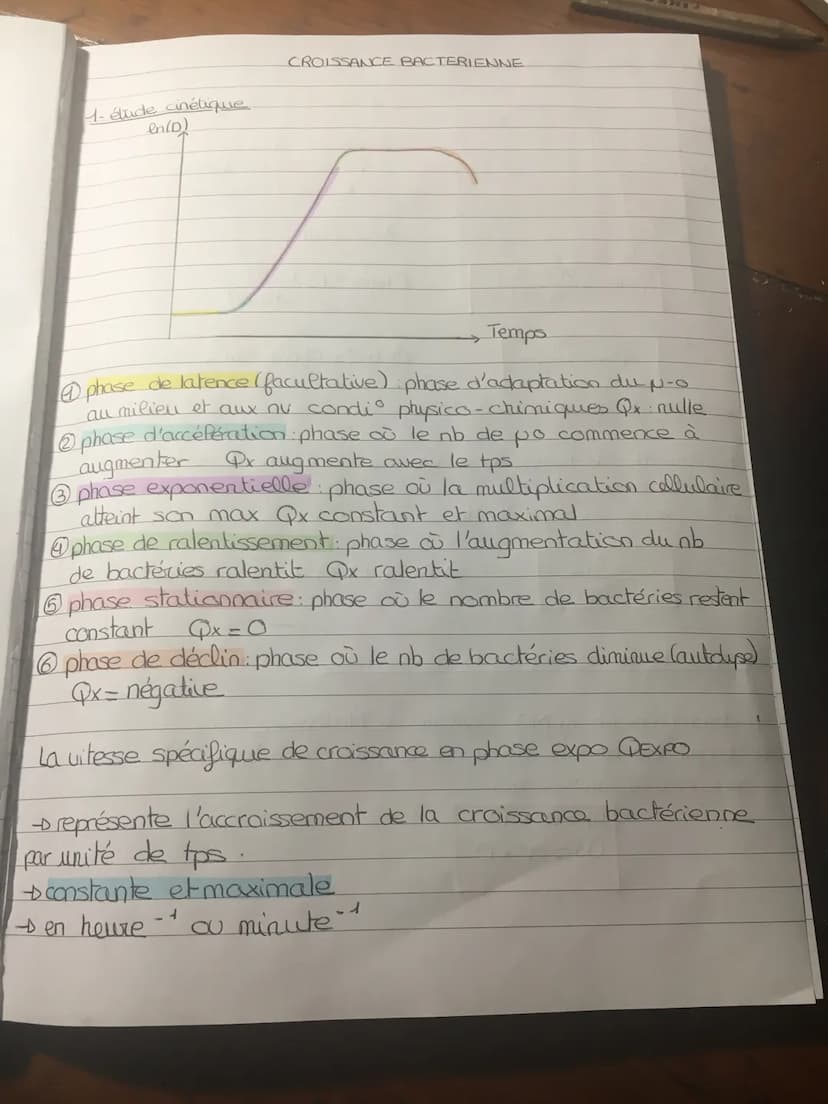 CROISSANCE BACTERIENNE
1- étude cinétique
ln(D)
Temps
① phase de latence (facultative) : phase d'adaptation du μ-o
au milieu et aux nv condi° physico-chimiques Qx : nulle
② phase d'accélération : phase où le nb de μo commence à
augmenter Qx augmente avec le tps
③ phase exponentielle : phase où la multiplication cellulaire
atteint son max Qx constant et maximal
④ phase de ralentissement : phase où l'augmentation du nb
de bactéries ralentit Qx ralentit
⑤ phase stationnaire : phase où le nombre de bactéries restent
constant Qx = 0
⑥ phase de déclin : phase où le nb de bactéries diminue
Qx = négative
La vitesse spécifique de croissance en phase expo QEXPO
→ représente l'accroissement de la croissance bactérienne
par unité de tps.
→ constante et maximale
→ en heure⁻¹ ou minute⁻¹